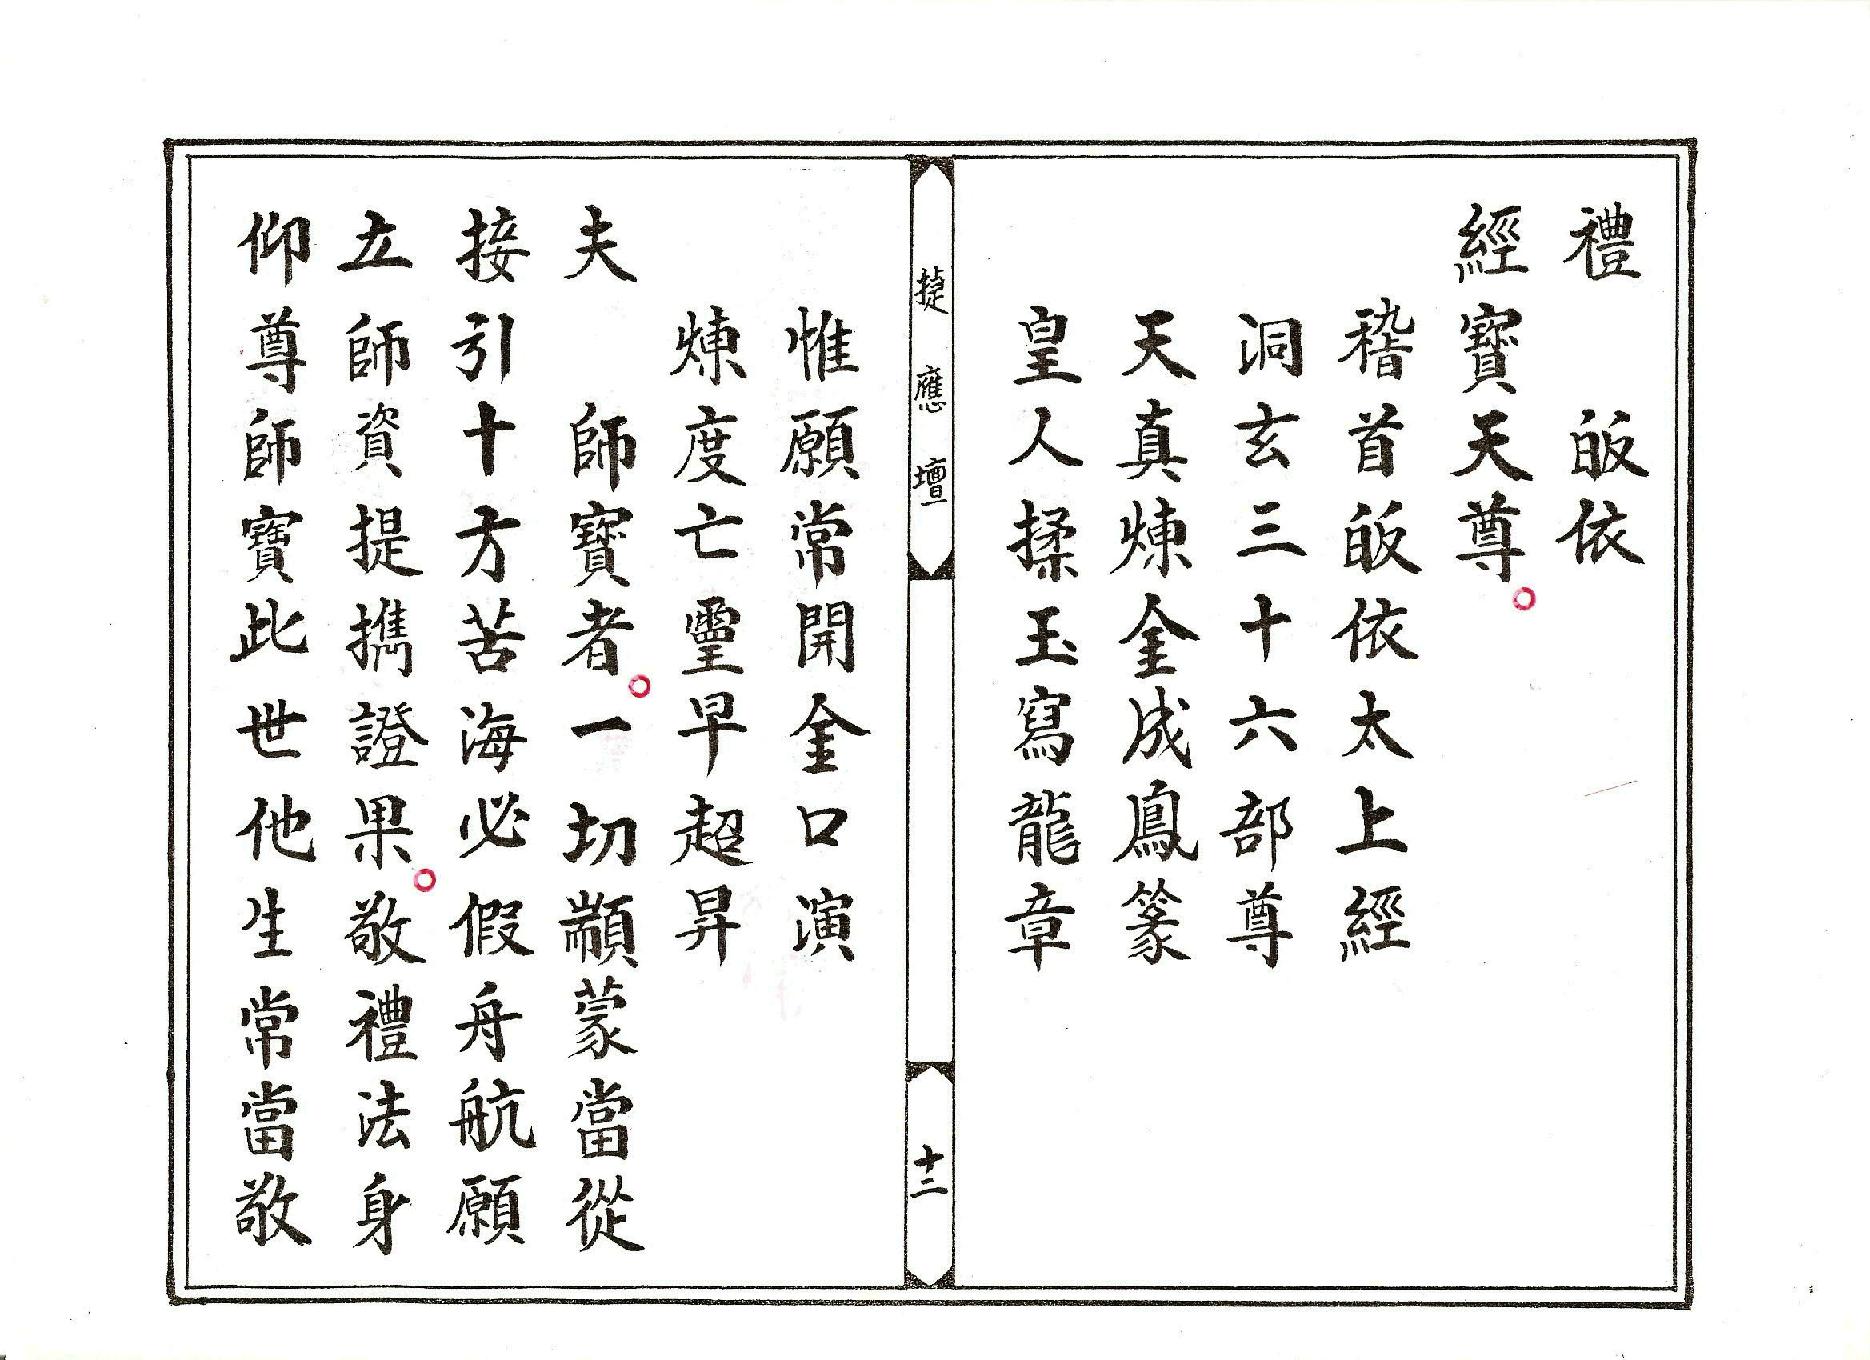 禮　皈依
經寶天尊。
稽首皈依太上經
洞玄三十六部尊
天真煉金成鳳篆
皇人揉玉寫龍章
捷應壇
十三
惟願常開金口演
煉度亡靈早超昇
夫　師寶者。一切顓蒙當從
接引十方苦海必假舟航願
立師資提攜證果。敬禮法身
仰尊師寶此世他生常當敬